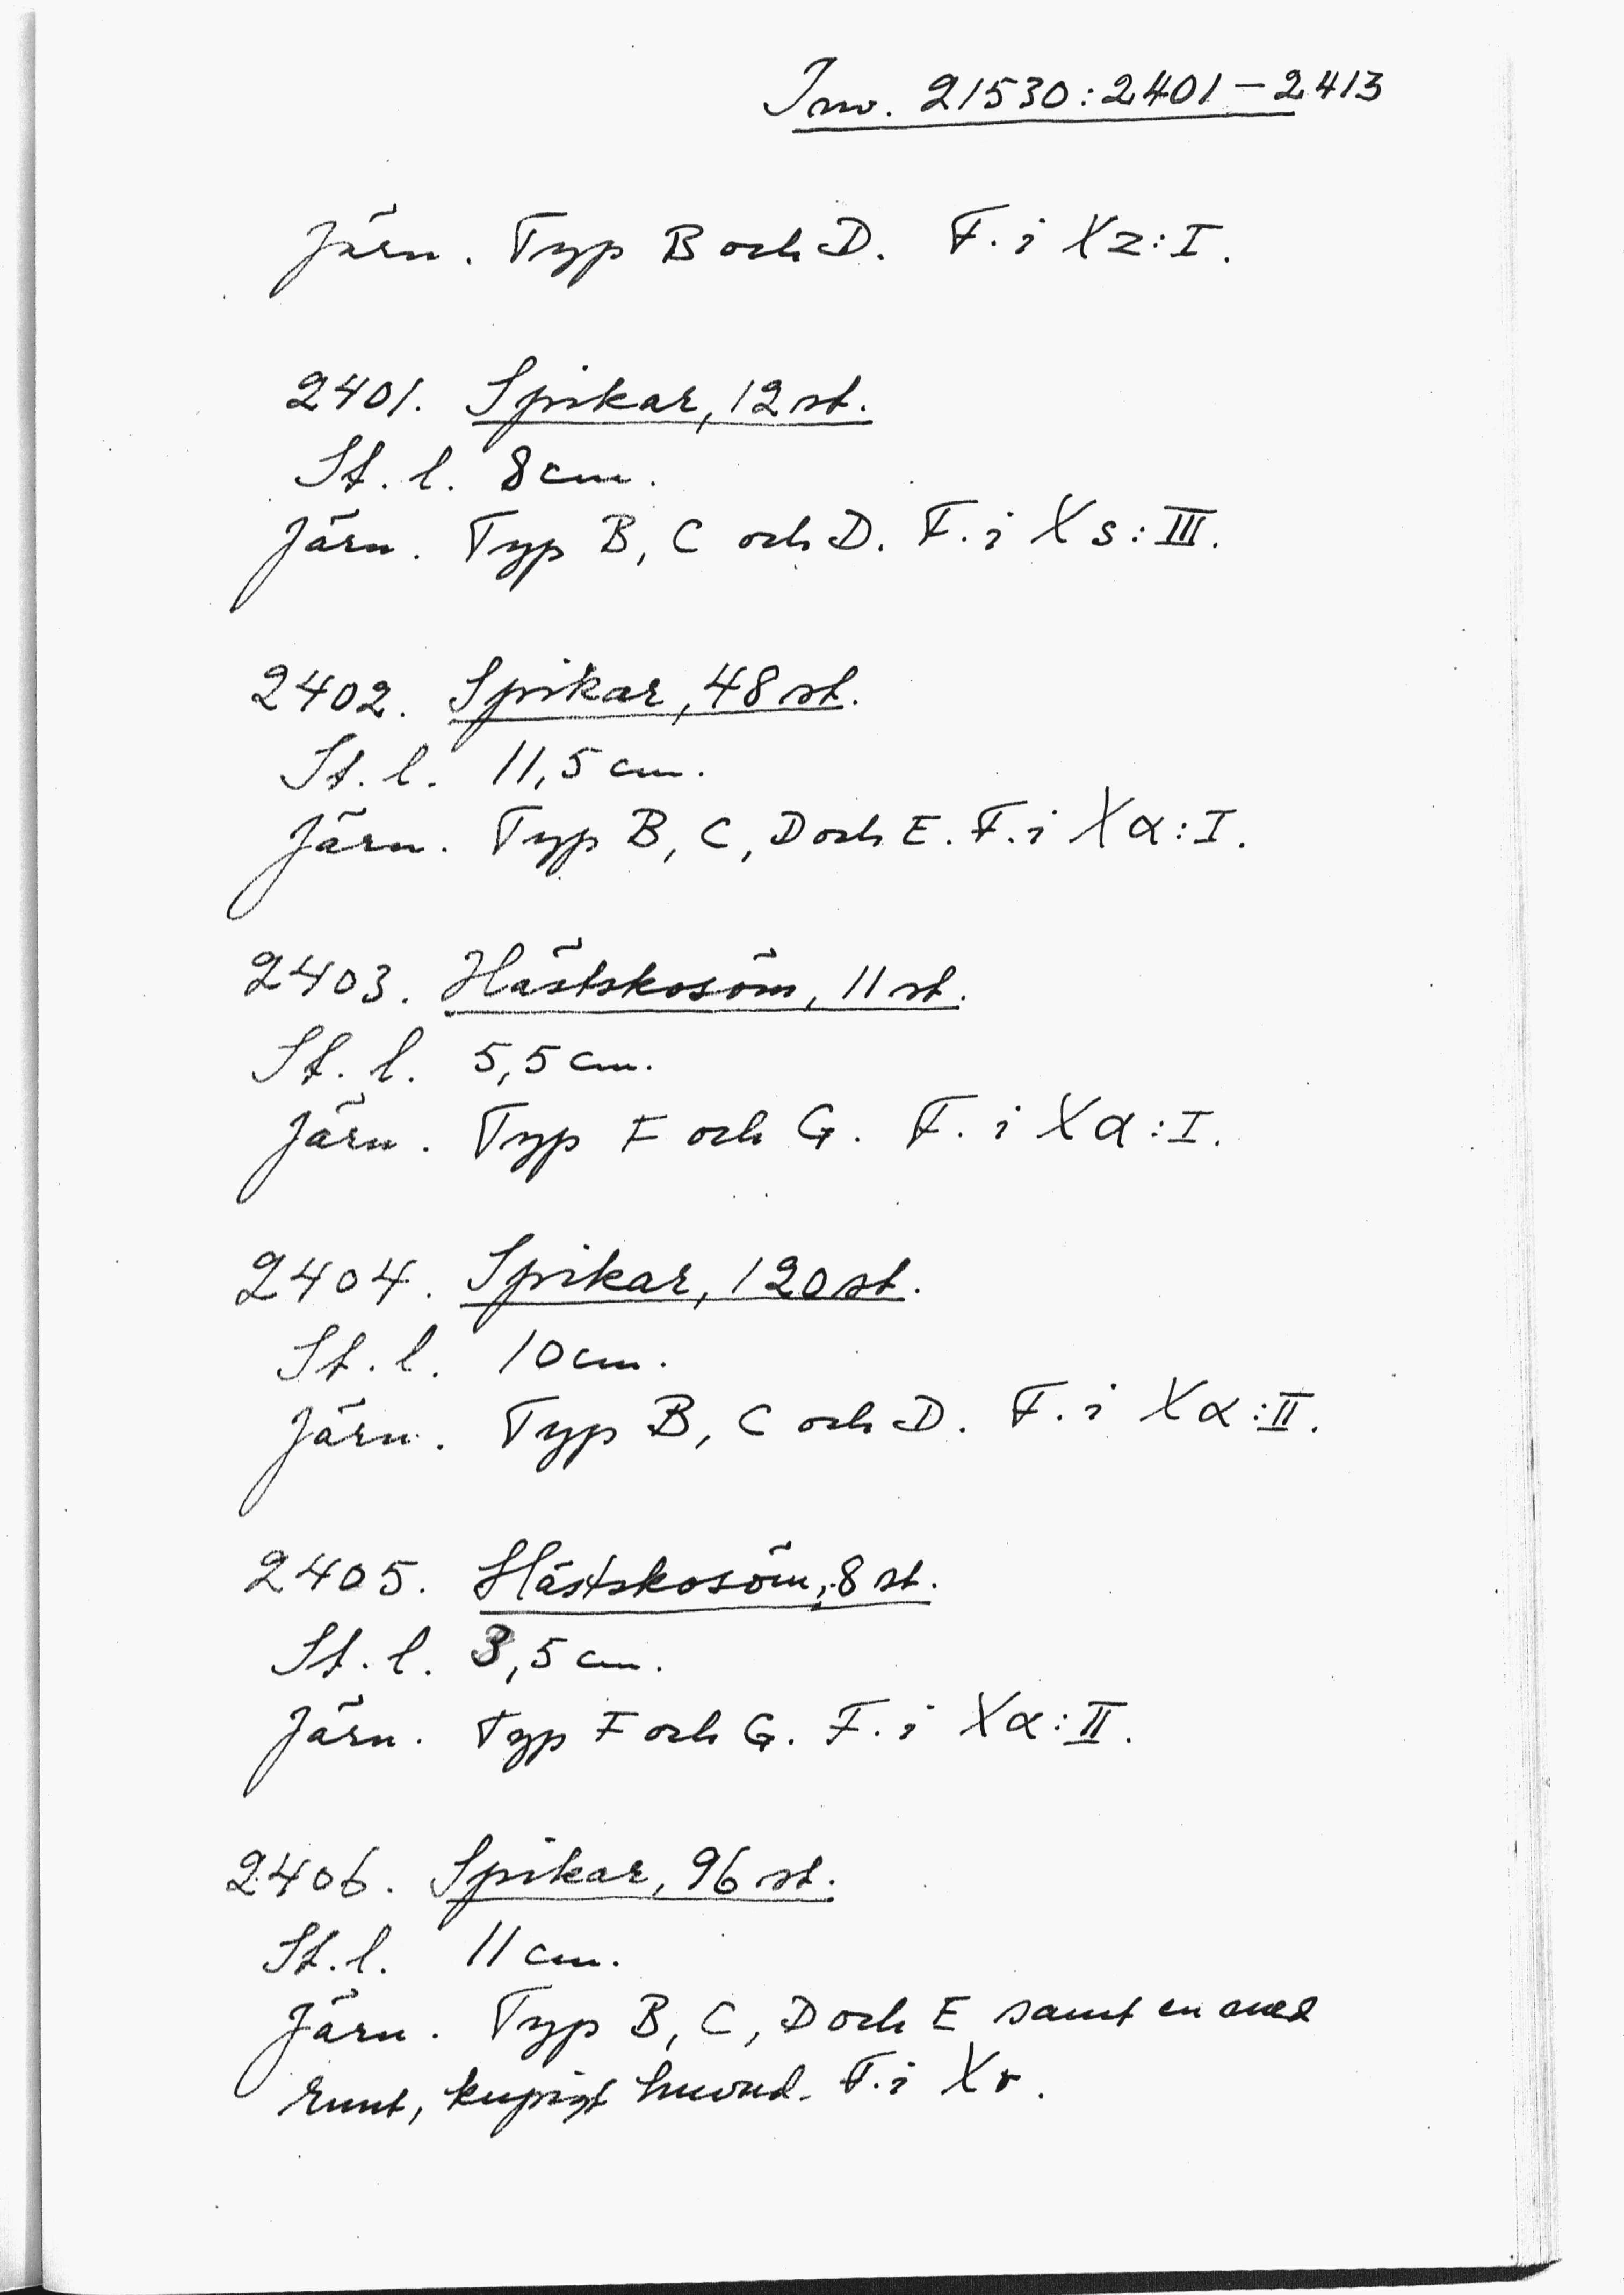 Inv. 21530:2401-2413
Järn. Typ B och D. F. i Xz:I.
2401. Spikar, 12 st.
St. l. 8 cm.
Järn. Typ B, C och D. F. i Xs:III.
2402. Spikar, 48 st.
St. l. 11,5 cm.
Järn. Typ B, C, D och E. F. i Xα:I.
2403. Hästskosöm, 11 st.
St. l. 5,5 cm.
Järn. Typ F och G. F. i Xα:I.
2404. Spikar, 120 st.
St. l. 10 cm.
Järn. Typ B, C och D. F. i Xα:II.
2405. Hästskosöm, 8 st.
St. l. 3,5 cm.
Järn. Typ F och G. F. i Xα:II.
2406. Spikar, 96 st.
St. l. 11 cm.
Järn. Typ B, C, D och E samt en med
runt, kupigt huvud. F. i